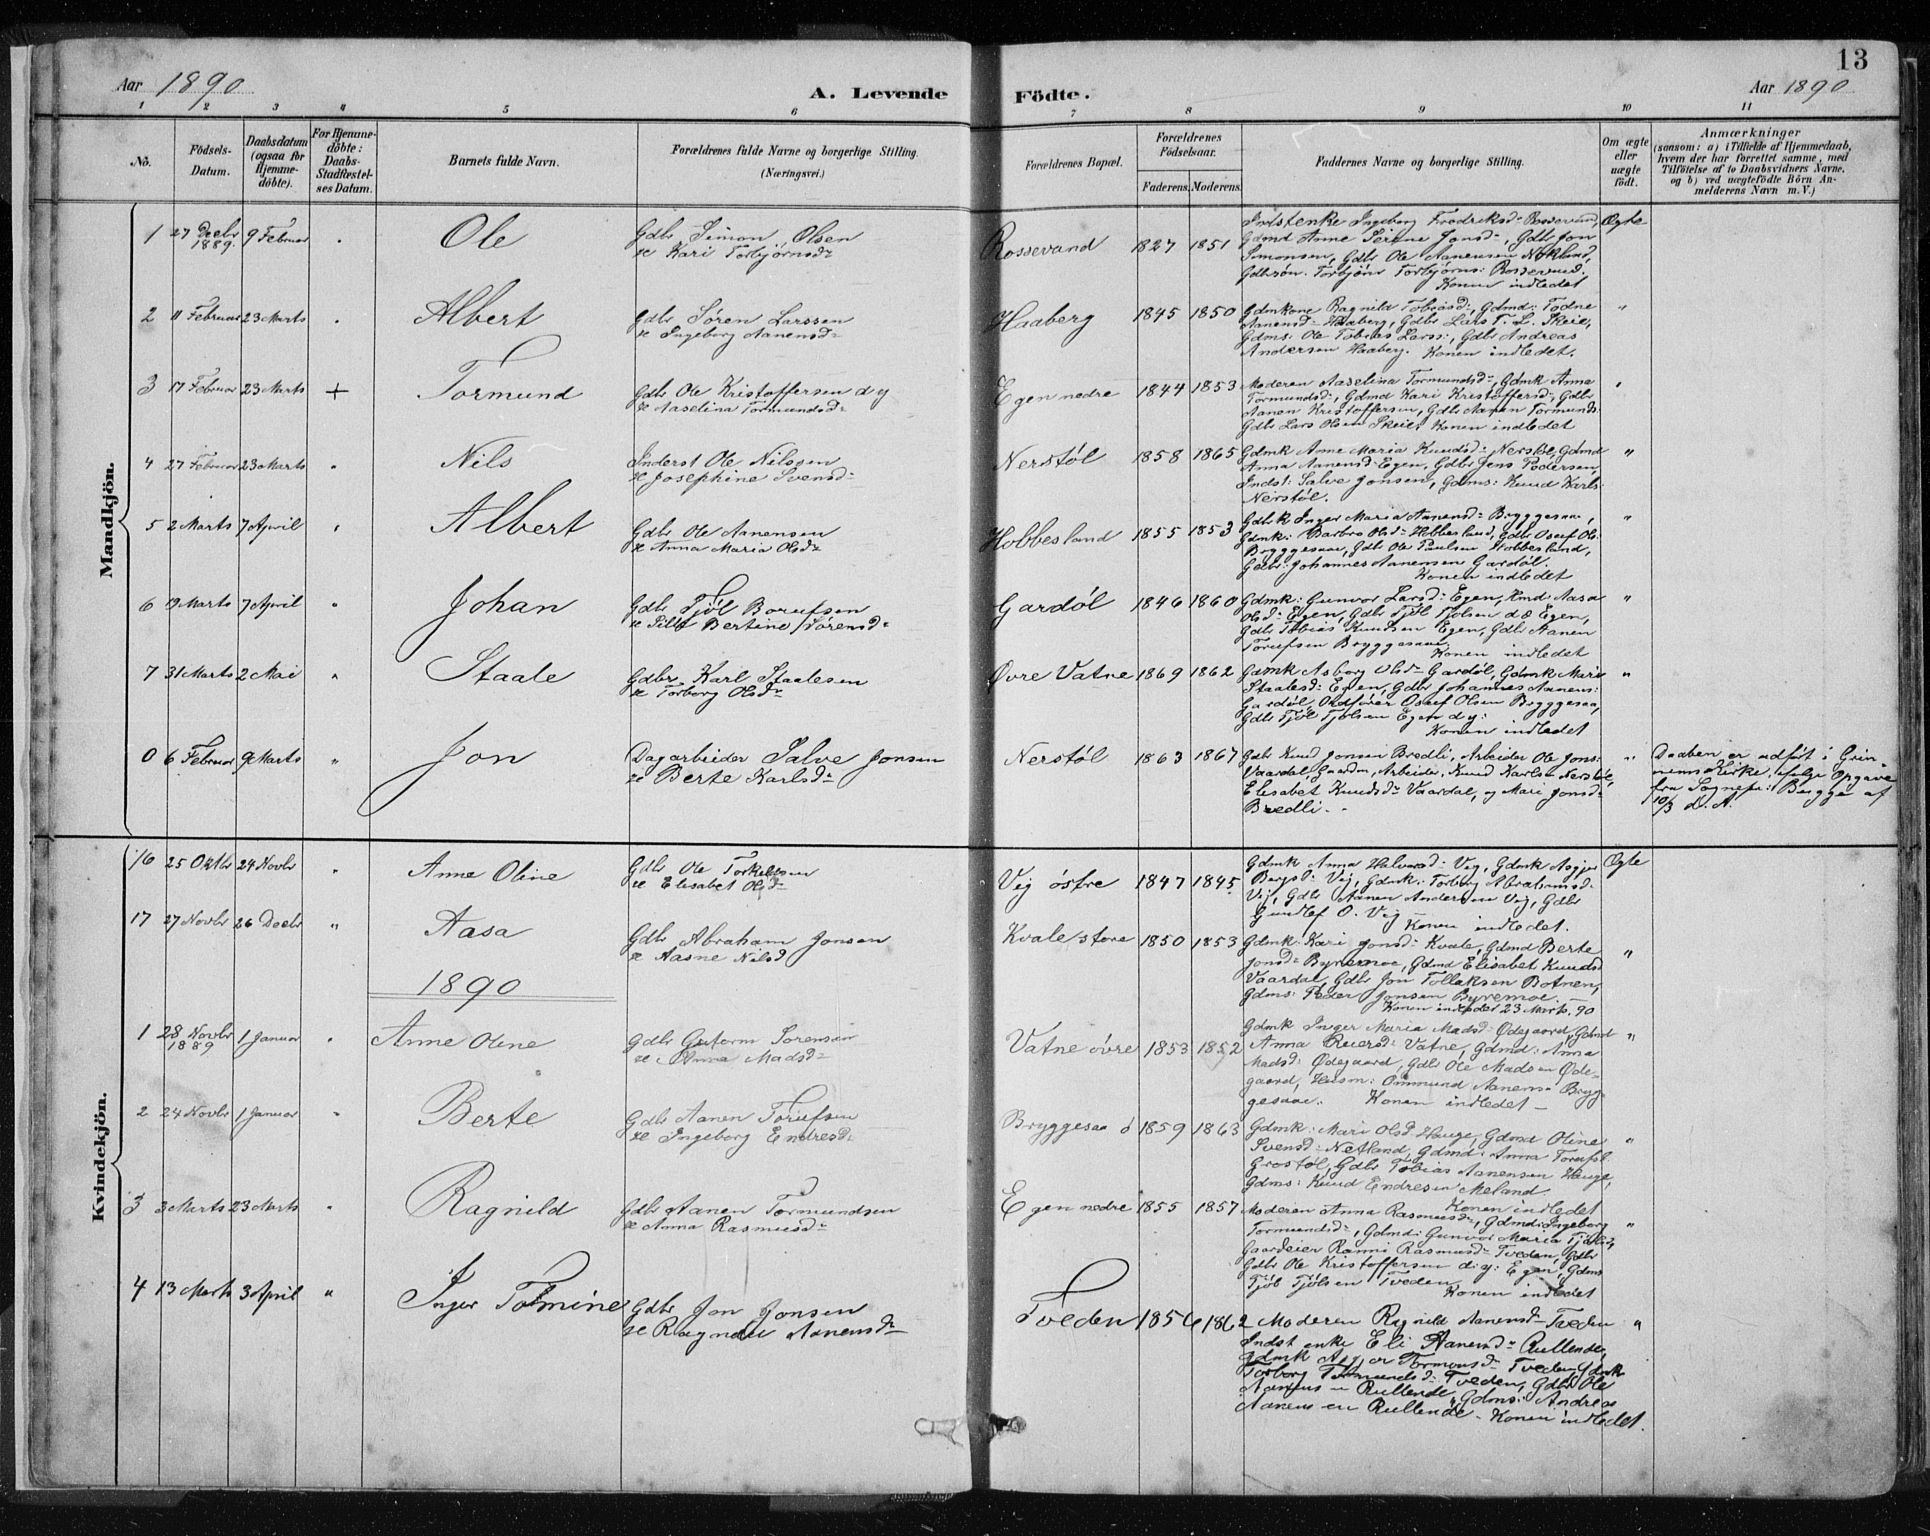 13
Aar 1890
A. Levende Födte.
Aar 1890
1 2 3 4 5 6 7 8 9 10 11
No.
Födsels-Datum.
Daabsdatum (ogsaa for Hjemme-döbte).
For Hjemme-döbte: Daabs-Stadfæstel-ses Datum.
Barnets fulde Navn.
Forældrenes fulde Navne og borgerlige Stilling. (Næringsvei.)
Forældrenes Bopæl.
Forældrenes Födselsaar.
Faderens. Moderens.
Faddernes Navne og borgerlige Stilling.
Om ægte eller uægte födt.
Anmærkninger
(saasom: a) i Tilfælde af Hjemmedaab,
hvem der har forrettet samme, med
Tilföielse af to Daabsvidners Navne,
og b) ved uægtefödte Börn An-
melderens Navn m. V.)
Mandkjön.
1 27 Decbr 1889. 9 Februar " Ole
Gdbr Simon Olsen
æ Kari Torbjørnsd:
Rossevand 1827 1851
Ingeborg Fredriksd: Rossevand,
Gdmd Anne Serine Jonsd:, Gdbr Jon
Simonsen, Gdbr Ole Aanensen
Gdbrsøn Torbjørn Torbjørns: Rossevand.
Konen indledet
Ægte
2 11 Februar 23 Marts " Albert
Gdbr Søren Larssen
æ Ingeborg Aanensd:
Haaberg 1845 1850
Gdmkone Ragnild Tobiasd:, Gdmd: Todne
Aanensd: Haaberg, Gdbr Lars T. L. Skeie,
Gdms: Ole Tobias Larss:, Gdbr Andreas
Andersen Haaberg. Konen indledet.
"
3 17 Februar 23 Marts + Tormund
Gdbr Ole Kristoffersen d y
æ Aaselina Tormundsd:
Egen nedre 1844 1853
Moderen Aaselina Tormundsd:, Gdmk Anna
Tormundsd:, Gdmd Kari Kristoffersd:, Gdbr
Aanen Kristoffersen, Gdbr Aanen Tormunds:
Gdbr Lars Olsen Skeie. Konen indledet
"
4 27 Februar 23 Marts " Nils
Inderst Ole Nilssen
æ Josephine Svensd:
Nerstøl 1858 1865
Gdmk Anne Maria Knudsd: Nerstøl, Gdmd
Anna Aanensd: Egen, Gdbr Jens Pedersen
Indst: Salve Jonsen, Gdms: Knud Karls:
Nerstøl.
"
5 2 Marts 7 April " Albert
Gdbr Ole Aanensen
æ Anna Maria Olsd:
Hobbesland 1855 1853
Gdbk Inger Maria Aanensd: Bryggesaa,
Gdmk: Barbro Olsd: Hobbesland, Gdbr Osuf Ols:
Bryggesaa, Gdbr Ole Paulsen Hobbesland,
Gdbr: Johannes Aanensen Gardøl.
Konen indledet
"
6 9 Marts 7 April " Johan
Gdbr Tjøl
æ Bertine Sørensd:
Gardøl 1846 1860
Gdmk: Gunvor Larsd: Egen, Aasa
Olsd: Egen, Gdbr Tjøl Tjølsen d æ Egen,
Gdbr Tobias Knudsen Egen, Gdbr Aanen
Torufsen Bryggesaa.
Konen indledet
"
7 31 Marts 2 Mai " Staale
Gdbr Karl Staalesen
æ Torborg Olsd:
Øvre Vatne 1869 1862
Gdmk Asborg Olsd: Gardøl, Gdmk Mari
Staalesd: Egen, Gdbr Johannes Aanens:
Gardøl, Ordfører Osuf Olsen Bryggesaa,
Gdbr Tjøl Tjølsen Egen d y:
Konen indledet
"
0 6 Februar 9 Marts " Jon
Dagarbeider Salve Jonsen
æ Berte Karlsd:
Nerstøl 1863 1867
Gdbr Knud Jonsen Bredli, Arbeider Ole Jons:
Vaardal, Arbeider, Knud Karlsen Nerstøl,
Elisabet Knudsd: Vaardal, og Mari Jonsd:
Bredli.
"
Daaben er udført i Grin-
nems Kirke, ifølge Opgave
fra Sognepr: Bugge af
10/3 d. A.
Kvindekjön.
16 25 Oktbr 24 Novbr " Anne Oline
Gdbr Ole Torkelsen
æ Elisabet Olsd:
Vig østre 1847 1845
Gdmk Anna Halvorsd: Vig, Gdmk Asgjer
Bergsd: Vig, Gdmk: Torborg Abrahamsd:
Vig, Gdbr Aanen Andersen Vig, Gdbr
Gundlef O. Vig
Konen indledet.
Ægte
17 27 Novbr 26 Decbr " Aasa
Gdbr Abraham Jonsen
æ Aasne Nilsd
Kvale store 1850 1853
Gdmk: Kari Jonsd: Kvale, Gdmd Berte
Jonsd: Byremoe, Gdmd Elisabet Knudsd
Vaardal, Gdbr Jon Tollaksen Botnen,
Gdms: Peder Jonsen Byremoe. —
Konen indledet 23 Marts. 90
"
1890
1 28 Novbr 1889 1 Januar " Anne Oline
Gdbr Gutorm Sørensen
æ Anna Madsd:
Vatne øvre 1853 1852
Gdmk Inger Maria Madsd: Ødegaard, Gdmd
Anna Reiersd: Vatne, Gdmd: Anna
Madsd: Ødegaard, Gdbr Ole Madsen Øde-
gaard, Husm: Ommund Aanens: Bryg-
gesaae. Konen indledet —
"
2 24 Novbr 1 Januar " Berte
Gdbr Aanen Torufsen
æ Ingeborg Endresd:
Bryggesaa ø 1859 1863
Gdmk: Mari Olsd Hauge, Gdmd Oline
Svensd: Netland, Gdmd: Anna
Grostøl, Gdbr Tobias Aanensen Hauge,
Gdms: Knud Endresen Meland.
Konen indledet
"
3 3 Marts 23 Marts " Ragnild
Gdbr Aanen Tormundsen
æ Anna Rasmusd:
Egen nedre 1855 1857
Moderen Anna Rasmusd:, Gdmd: Ingeborg
Tormundsd:, Gdmd: Gunvor Maria
Gaardeier Rasmusd: Tveden, Gdbr
Gdbr Ole Kristoffersen d: y: Egen, Gdms
Tjøl Tjølsen Tveden
Konen indledet
"
4 13 Marts 3 April " Inger Tomine
Gdbr Jon Jonsen
æ Ragnild Aanensd:
Tveden 1856 1862
Moderen Ragnild Aanensd: Tveden
Indst enke Eli Aanensd: Rullende,
Gdmk Tveden, Gdmk
Torborg Tormundsd: Tveden, Gdbr Ole
Aanensen Rullende, Gdms: Andreas
Aanensen Rullende. Konen indledet.
"